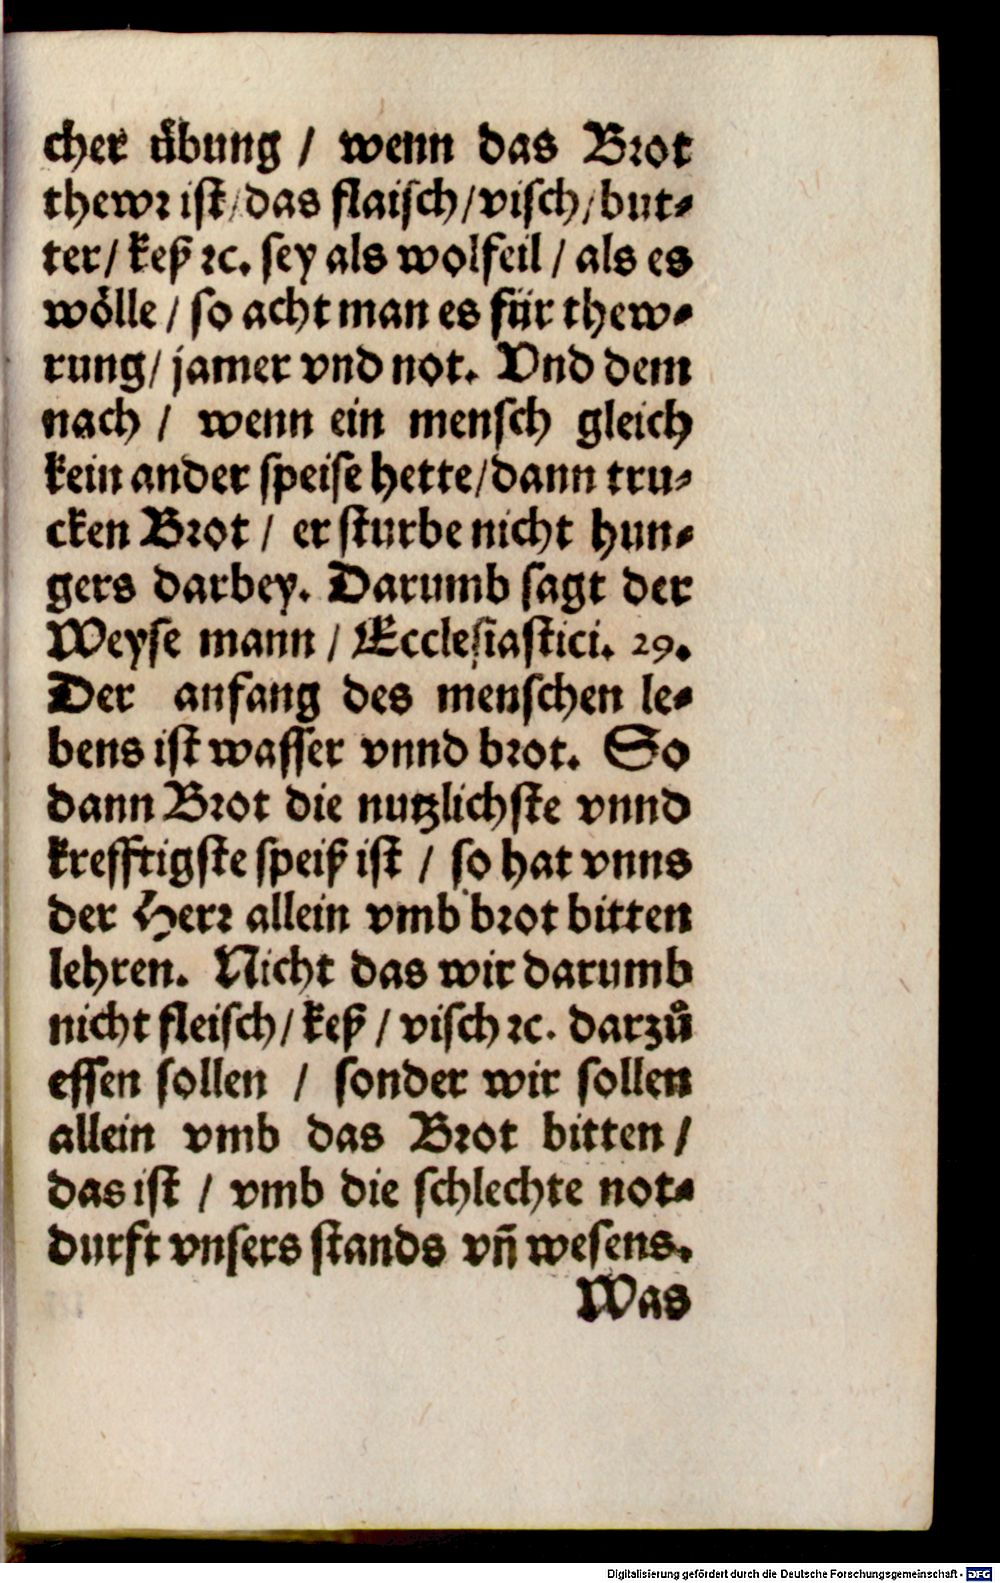 cher uͤbung / wenn das Brot
thewꝛ iſt/ das flaiſch/ viſch/ but⸗
ter/ keß ꝛc. ſey als wolfeil / als es
woͤlle / ſo acht man es für thew⸗
rung/ jamer vnd not. Vnd dem
nach / wenn ein menſch gleich
kein ander ſpeiſe hette/ dann tru⸗
cken Brot / er ſturbe nicht hun⸗
gers darbey. Darumb ſagt der
Weyſe mann / Eccleſiaſtici. 29.
Der anfang des menſchen le⸗
bens iſt waſſer vnnd brot. So
dann Brot die nutzlichſte vnnd
krefftigſte ſpeiß iſt / ſo hat vnns
der Herꝛ allein vmb brot bitten
lehren. Nicht das wir darumb
nicht fleiſch/ keß / viſch ꝛc. darzuͦ
eſſen ſollen / ſonder wir ſollen
allein vmb das Brot bitten /
das iſt / vmb die ſchlechte not⸗
durft vnſers ſtands vñ weſens.
Was
Digitalisierung gefördert durch die Deutsche Forschungsgemeinschaft - DFG